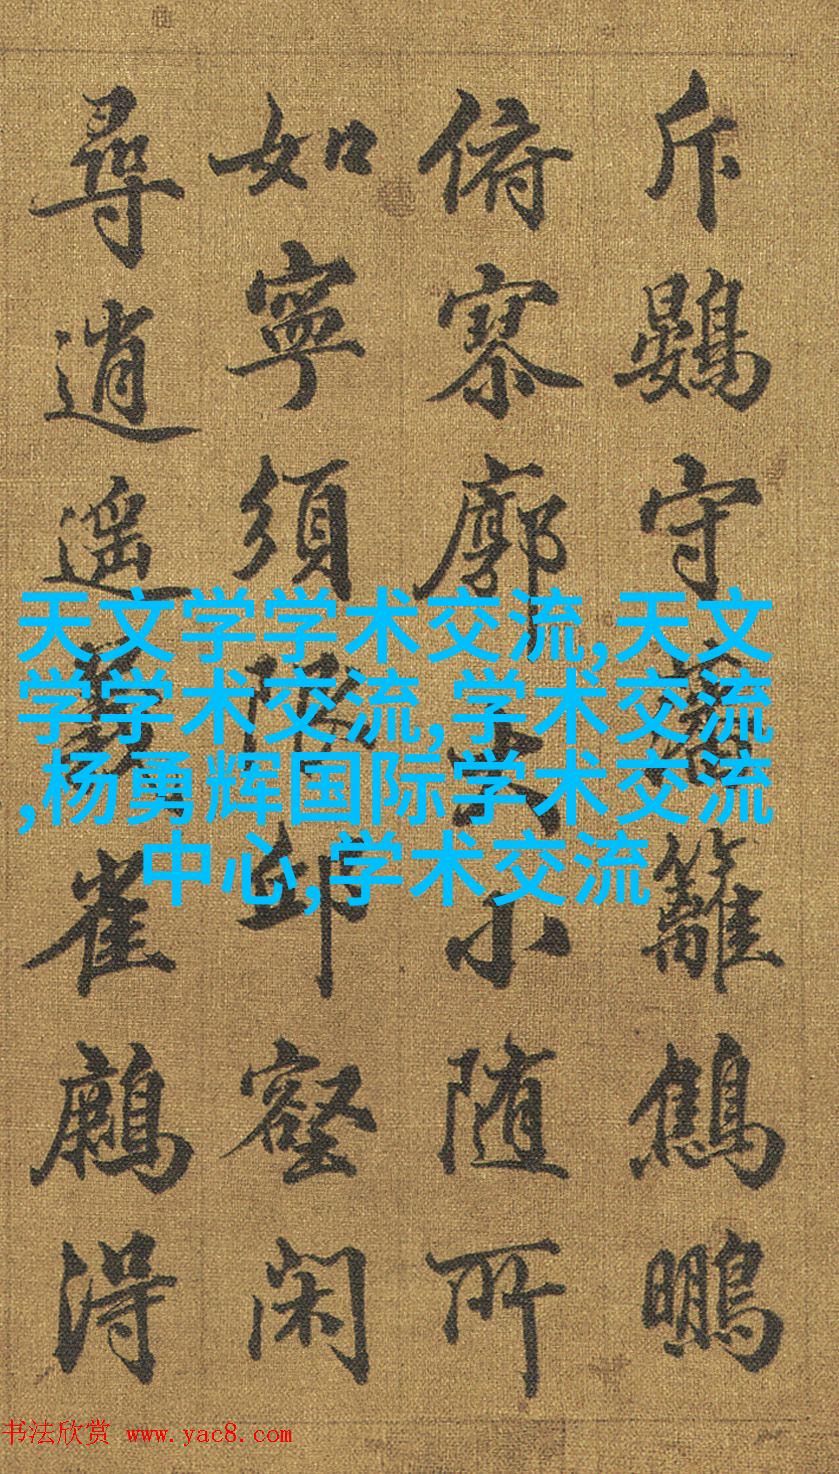 斥鷃守籬鷦鵬
俯寥廓大小随所
如寧須限邱壑闲
尋逍遥雀得
天文学学术交流,天文
学学术交流,学术交流
,杨勇辉国际学术交流
中心,学术交流
书法欣赏 www.yac8.com